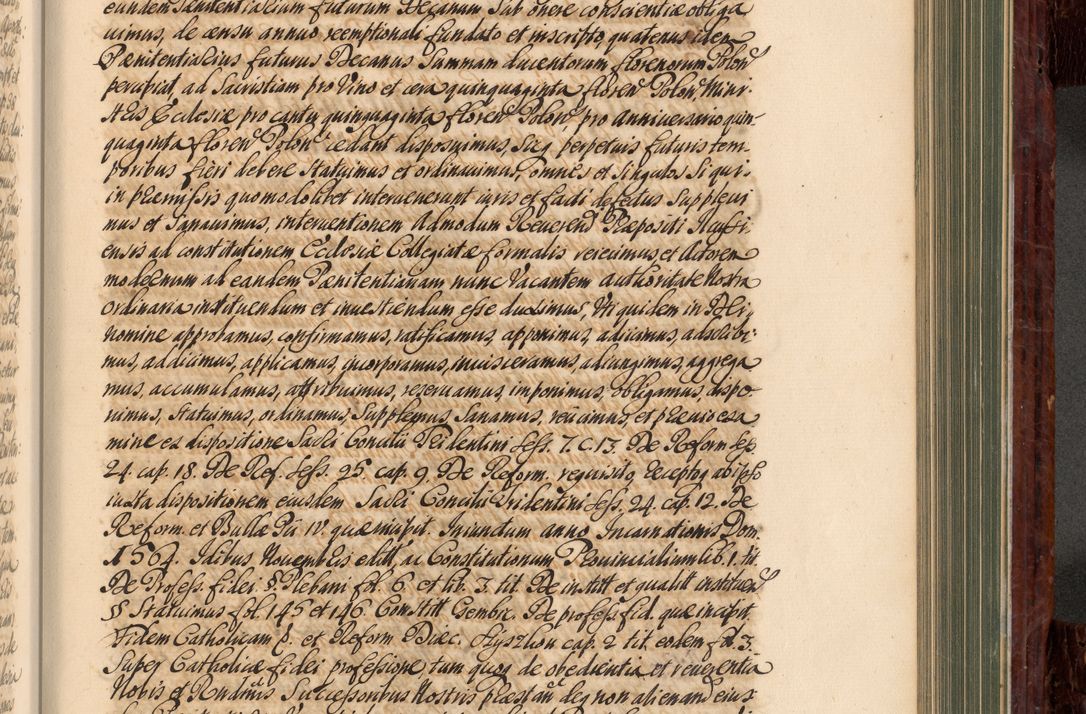 eundem Pænitentialium futurum Decanum Sub onere conscientiæ obliga
uimus, de censu annuo reemptionali fundato et inscripto, quatenus idem
Pænitentialius futurus Decanus Summam ducentorum florenorum Polon
percipiat, ad Sacristiam pro Vino et cera quinquaginta floren Polon, Mini-
stris Ecclesiæ pro cantu quinquaginta floren Polon, pro anniversario quin-
quaginta floren Polon cedant disposuimus, Sicq perpetuis futuris tem-
poribus fieri debere statuimus et ordinauimus, omnes et singulos Si qui
in præmissis quomodolibet interuenerunt iuris et facti defectus Suppleui
mus et Sanauimus, interuentionem Admodum Reuerend Præpositi
ensis ad constitutionem Ecclesiæ Collegiatæ formalis reiecimus et Actorem
modernum ad eandem Pænitentiariam nunc Vacantem authoritate Nostra
Ordinaria instituendum et inuestiendum esse duximus, Uti quidem in Dei
nomine approbamus, confirmamus, ratificamus, apponimus, adijcimus, adscribi-
mus, addicimus, applicamus, incorporamus, inuisceramus, adiungimus, aggrega
mus, accumulamus, attribuimus, reseruamus, imponimus, obligamus, dispo-
nimus, statuimus, ordinamus, Supplemus, Sanamus, reijcimus, et præuio exa
mine ex dispositione Sacri Concilii Tridentini Sess. 7. C. 13. De Reform Ses.
24. cap. 18. De Ref. Sess. 25 cap. 9. De Reform. requisito, recepto ab ipso
iuxta dispositionem eiusdem Sacri Concilii Tridentini Sess. 24. cap. 12. De
Reform. et Bullæ Pii IV. quæ incipit. Iniunctum anno Incarnationis Dom.
1564. Idibus Nouembris edit, ac Constitutionum Prouincialium lib. 1. tit.
De Profess. fidei §. Plebani fol. 6 et lib. 3. tit. De instit et qualit instituen
§ Statuimus fol. 145 et 146. Constitt Cembr. De profess. fid. quæ incipit
Fidem Catholicam p. et Reform Diæc. cap. 2 tit eodem fol. 3.
Super Catholicæ fidei professione tum quoq de obedientia et reuerentia
Nobis et Rndmis Successoribus Nostris præstan deq non alienand eius